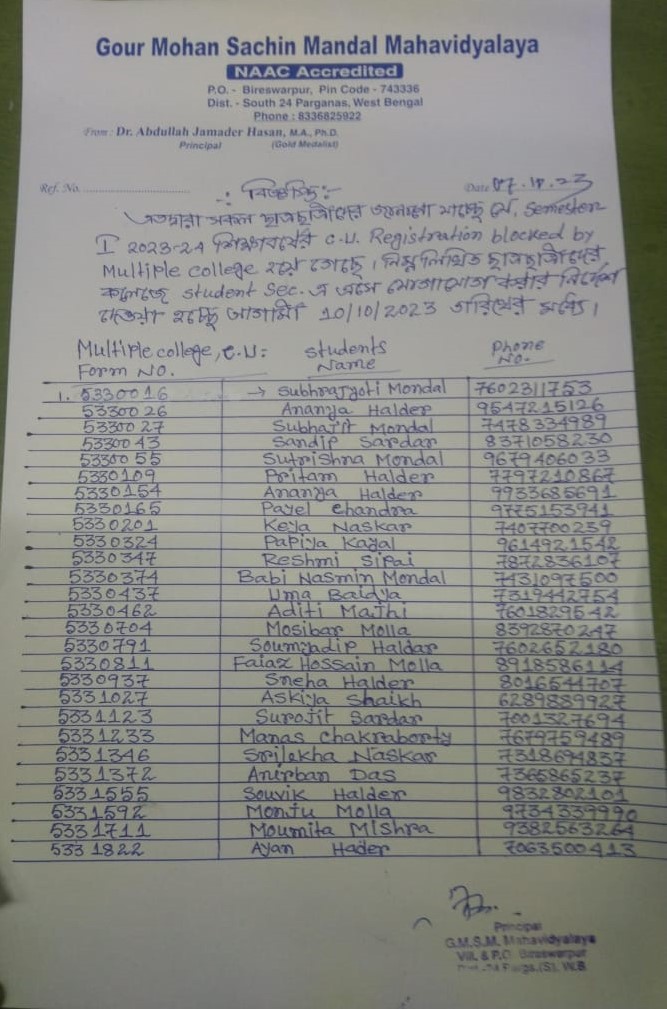 Gour Mohan Sachin Mandal Mahavidyalaya
NAAC Accredited
P.O. - Bireswarpur, Pin Code - 743336
Dist. - South 24 Parganas, West Bengal
Phone : 8336825922
From : Dr. Abdullah Jamader Hasan, M.A., Ph.D.
Principal (Gold Medalist)
Ref. No. Date 07.10.23
-: বিজ্ঞপ্তি :-
এতদ্বারা সকল ছাত্রছাত্রীদের জানানো যাচ্ছে যে, Semester
I 2023-24 শিক্ষাবর্ষের C.U. Registration blocked by
Multiple college হয়ে গেছে। নিম্নলিখিত ছাত্রছাত্রীদের
কলেজে student Sec. এ এসে যোগাযোগ করার নির্দেশ
দেওয়া হচ্ছে আগামী 10/10/2023 তারিখের মধ্যে।
Multiple college, C.U: Students Phone
Form No. Name No.
1. 5330016 → Subhrajyoti Mondal 7602311753
5330026 Ananya Halder 9547215126
5330027 Subhajit Mondal 7478334989
5330043 Sandip Sardar 8371058230
5330055 Sutrishna Mondal 9679406033
5330109 Pritam Halder 7797210867
5330154 Ananya Halder 9933685691
5330165 Payel Chandra 9775153941
5330201 Keya Naskar 7407700239
5330324 Papiya Kayal 9614921542
5330347 Reshmi Sipai 7872836107
5330374 Babi Nasmin Mondal 7431097500
5330437 Uma Baidya 7319442754
5330462 Aditi Majhi 7601829542
5330704 Mosibar Molla 8392870247
5330791 Soumyadip Haldar 7602652180
5330811 Faiaz Hossain Molla 8918586114
5330937 Sneha Halder 8016544707
5331027 Askiya Shaikh 6289889927
5331123 Surojit Sardar 7001327694
5331233 Manas Chakraborty 7679759489
5331346 Srilekha Naskar 7318694837
5331372 Anirban Das 7365865237
5331555 Souvik Halder 9832802101
5331592 Monju Molla 9734339990
5331711 Moumita Mishra 9382563264
5331822 Ayan Hader 7063500413
Principal
G.M.S.M. Mahavidyalaya
Vill. & P.O. Bireswarpur
Dist.-24 Parga.(S), W.B